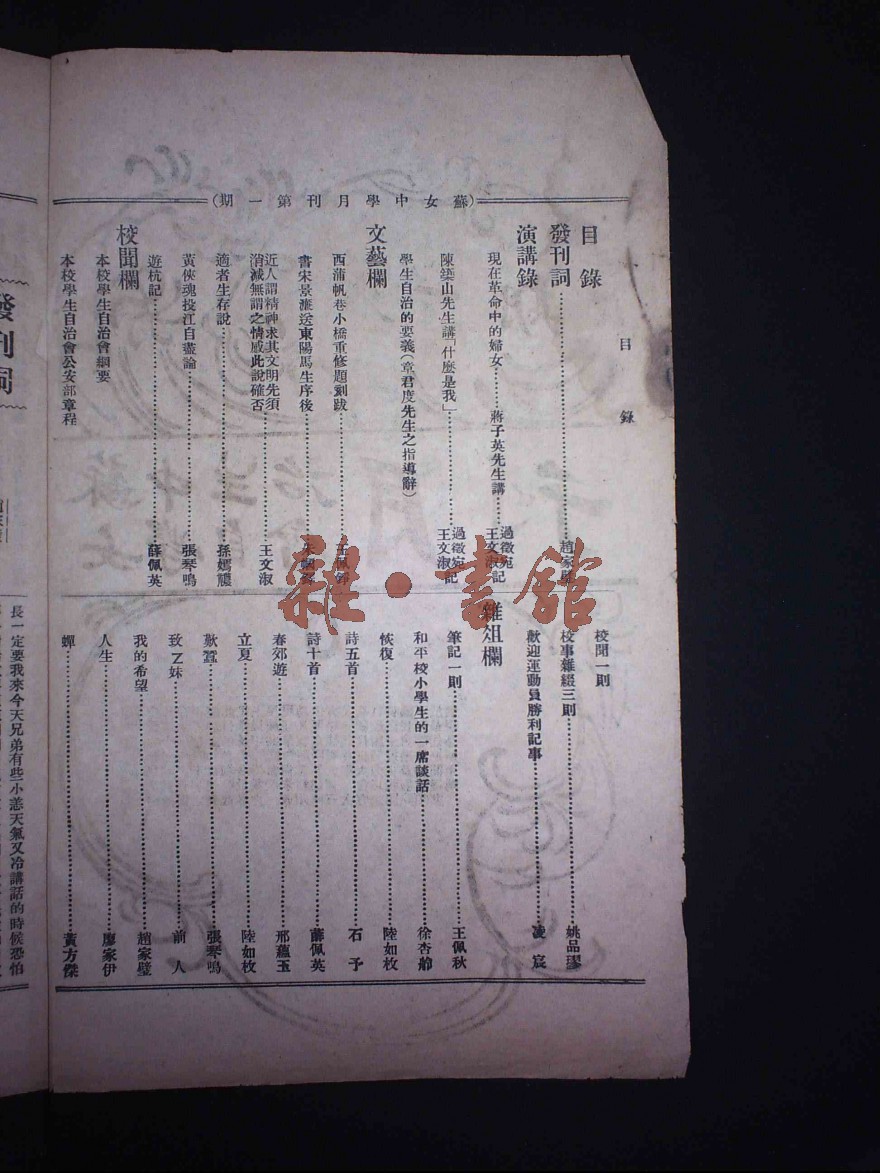 （蘇女中學月刊第一期）
目錄
目錄
發刊詞……趙家璧
演講錄
現在革命中的婦女……蔣子英先生講……過微宛 王文淑記
陳築山先生講「什麼是我」……過微宛 王文淑記
學生自治的要義（章君度先生之指導辭）
文藝欄
西蒲帆巷小橋重修題劉跋
書宋景濂送東陽馬生序後
近人謂精神求其文明先須
消滅無謂之情感此說確否……王文淑
適者生存說……孫嫣
黃俠魂投江自盡論……張琴鳴
遊杭記……薛佩英
校聞欄
本校學生自治會綱要
本校學生自治會公安部章程
校聞一則
校事雜綴三則……姚品璆
歡迎運動員勝利記事……凌宸
雜俎欄
筆記一則……王佩秋
和平校小學生的一席談話……徐杏齡
恢復……陸如枚
詩五首……石予
詩十首……薛佩英
春郊遊……邢蘊玉
立夏……陸如枚
歎蠶……張琴鳴
致乙妹……前人
我的希望……趙家璧
人生……廖家伊
蟬……黃方傑
發刊詞
長一定要我來今天兄弟有些小恙天氣又冷講話的時候恐怕
雜·書館